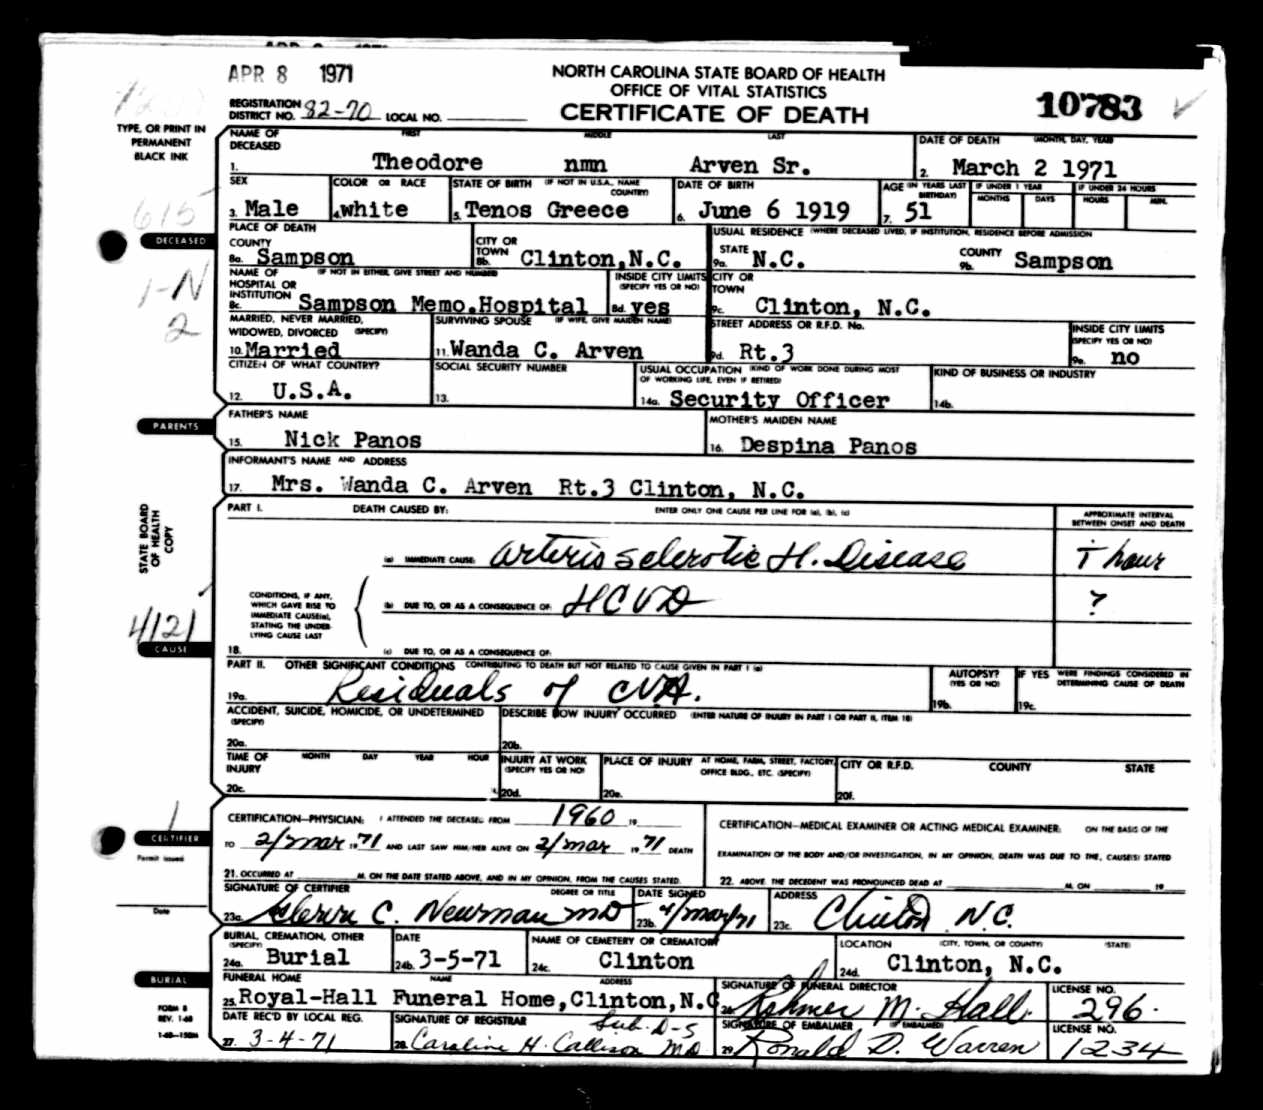 APR 8 1971
NORTH CAROLINA STATE BOARD OF HEALTH
OFFICE OF VITAL STATISTICS
CERTIFICATE OF DEATH
10783
REGISTRATION DISTRICT NO. 82-70 LOCAL NO.
TYPE, OR PRINT IN
PERMANENT
BLACK INK
NAME OF DECEASED FIRST MIDDLE LAST
1. Theodore nmn Arven Sr.
DATE OF DEATH (MONTH, DAY, YEAR)
2. March 2 1971
615
SEX
3. Male
COLOR OR RACE
4. white
STATE OF BIRTH (IF NOT IN U.S.A., NAME COUNTRY)
5. Tenos Greece
DATE OF BIRTH
6. June 6 1919
AGE (IN YEARS LAST BIRTHDAY)
7. 51
IF UNDER 1 YEAR
MONTHS DAYS
IF UNDER 24 HOURS
HOURS MIN.
DECEASED
1-N
2
PLACE OF DEATH
COUNTY
8a. Sampson
CITY OR TOWN
8b. Clinton,N.C.
USUAL RESIDENCE (WHERE DECEASED LIVED, IF INSTITUTION, RESIDENCE BEFORE ADMISSION
STATE
9a. N.C.
COUNTY
9b. Sampson
NAME OF HOSPITAL OR INSTITUTION (IF NOT IN EITHER, GIVE STREET AND NUMBER
8c. Sampson Memo.Hospital
INSIDE CITY LIMITS
(SPECIFY YES OR NO)
8d. yes
CITY OR TOWN
9c. Clinton, N.C.
MARRIED, NEVER MARRIED,
WIDOWED, DIVORCED (SPECIFY)
10. Married
SURVIVING SPOUSE (IF WIFE, GIVE MAIDEN NAME)
11. Wanda C. Arven
STREET ADDRESS OR R.F.D. No.
9d. Rt.3
INSIDE CITY LIMITS
(SPECIFY YES OR NO)
9e. no
CITIZEN OF WHAT COUNTRY?
12. U.S.A.
SOCIAL SECURITY NUMBER
13.
USUAL OCCUPATION (KIND OF WORK DONE DURING MOST
OF WORKING LIFE, EVEN IF RETIRED)
14a. Security Officer
KIND OF BUSINESS OR INDUSTRY
14b.
PARENTS
FATHER'S NAME
15. Nick Panos
MOTHER'S MAIDEN NAME
16. Despina Panos
INFORMANT'S NAME AND ADDRESS
17. Mrs. Wanda C. Arven Rt.3 Clinton, N.C.
STATE BOARD
OF HEALTH
COPY
PART I. DEATH CAUSED BY: ENTER ONLY ONE CAUSE PER LINE FOR (a), (b), (c)
APPROXIMATE INTERVAL
BETWEEN ONSET AND DEATH
(a) IMMEDIATE CAUSE: Arterio sclerotic H. Disease
hour
CONDITIONS, IF ANY,
WHICH GAVE RISE TO
IMMEDIATE CAUSE(a),
STATING THE UNDER-
LYING CAUSE LAST
(b) DUE TO, OR AS A CONSEQUENCE OF: HCVD
?
4121
CAUSE
18. (c) DUE TO, OR AS A CONSEQUENCE OF:
PART II. OTHER SIGNIFICANT CONDITIONS CONTRIBUTING TO DEATH BUT NOT RELATED TO CAUSE GIVEN IN PART I (a)
19a. Residuals of CVA.
AUTOPSY?
(YES OR NO)
19b.
IF YES WERE FINDINGS CONSIDERED IN
DETERMINING CAUSE OF DEATH
19c.
ACCIDENT, SUICIDE, HOMICIDE, OR UNDETERMINED
(SPECIFY)
20a.
DESCRIBE HOW INJURY OCCURRED (ENTER NATURE OF INJURY IN PART I OR PART II, ITEM 18)
20b.
TIME OF INJURY MONTH DAY YEAR HOUR
20c.
INJURY AT WORK
(SPECIFY YES OR NO)
20d.
PLACE OF INJURY AT HOME, FARM, STREET, FACTORY,
OFFICE BLDG., ETC. (SPECIFY)
20e.
CITY OR R.F.D. COUNTY STATE
20f.
CERTIFIER
Permit issued
Date
CERTIFICATION—PHYSICIAN: I ATTENDED THE DECEASED FROM 1960 19
TO 2/mar 1971 AND LAST SAW HIM/HER ALIVE ON 2/mar 1971 DEATH
21. OCCURRED AT M. ON THE DATE STATED ABOVE, AND IN MY OPINION, FROM THE CAUSES STATED.
CERTIFICATION—MEDICAL EXAMINER OR ACTING MEDICAL EXAMINER: ON THE BASIS OF THE
EXAMINATION OF THE BODY AND/OR INVESTIGATION, IN MY OPINION, DEATH WAS DUE TO THE, CAUSE(S) STATED
22. ABOVE. THE DECEDENT WAS PRONOUNCED DEAD AT M. ON 19
SIGNATURE OF CERTIFIER DEGREE OR TITLE
23a. C. Newman MD
DATE SIGNED
23b. 4/mar/71
ADDRESS
23c. Clinton N.C.
BURIAL, CREMATION, OTHER
(SPECIFY)
24a. Burial
DATE
24b. 3-5-71
NAME OF CEMETERY OR CREMATORY
24c. Clinton
LOCATION (CITY, TOWN, OR COUNTY) (STATE)
24d. Clinton, N.C.
BURIAL
FUNERAL HOME NAME ADDRESS
25. Royal-Hall Funeral Home,Clinton,N.C
SIGNATURE OF FUNERAL DIRECTOR
26. M. Hall.
LICENSE NO.
296.
FORM 8
REV. 1-68
1-68—150M
DATE REC'D BY LOCAL REG.
27. 3-4-71
SIGNATURE OF REGISTRAR Sub. D-S
28. Caroline H. Callison MD
SIGNATURE OF EMBALMER (IF EMBALMED)
29. Ronald D. Warren
LICENSE NO.
1234